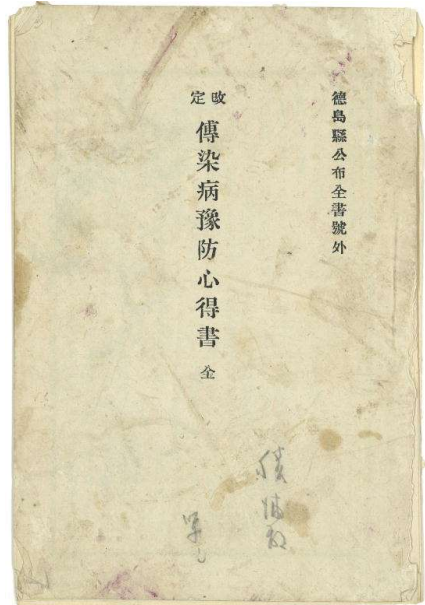 德島縣公布全書號外
改定
傳染病豫防心得書 全